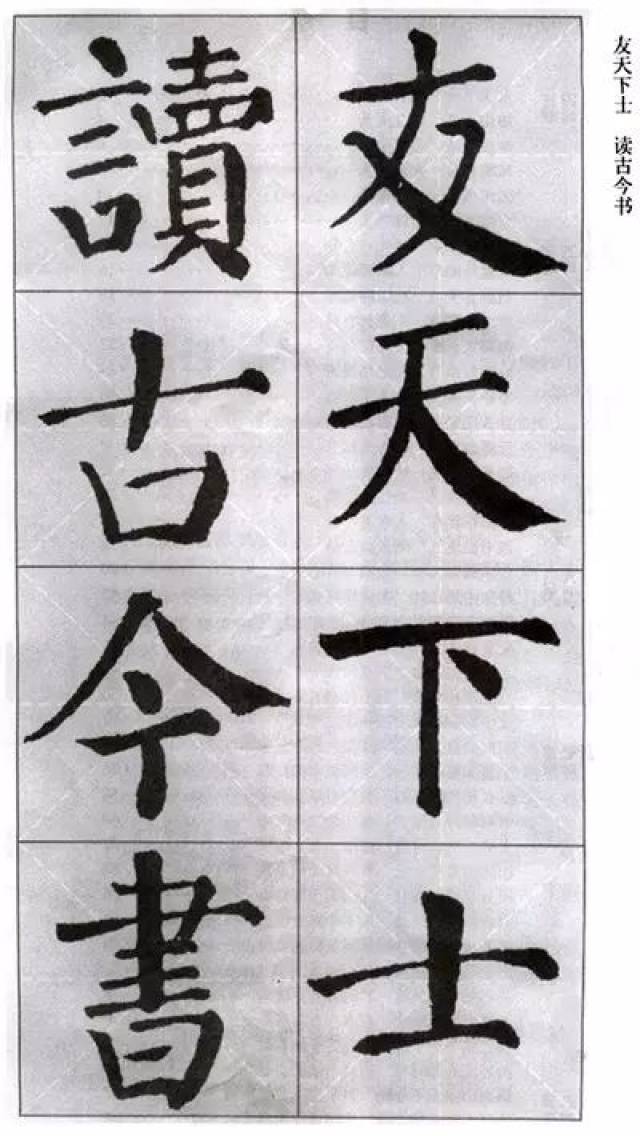 友天下士　读古今书
友天下士
讀古今書